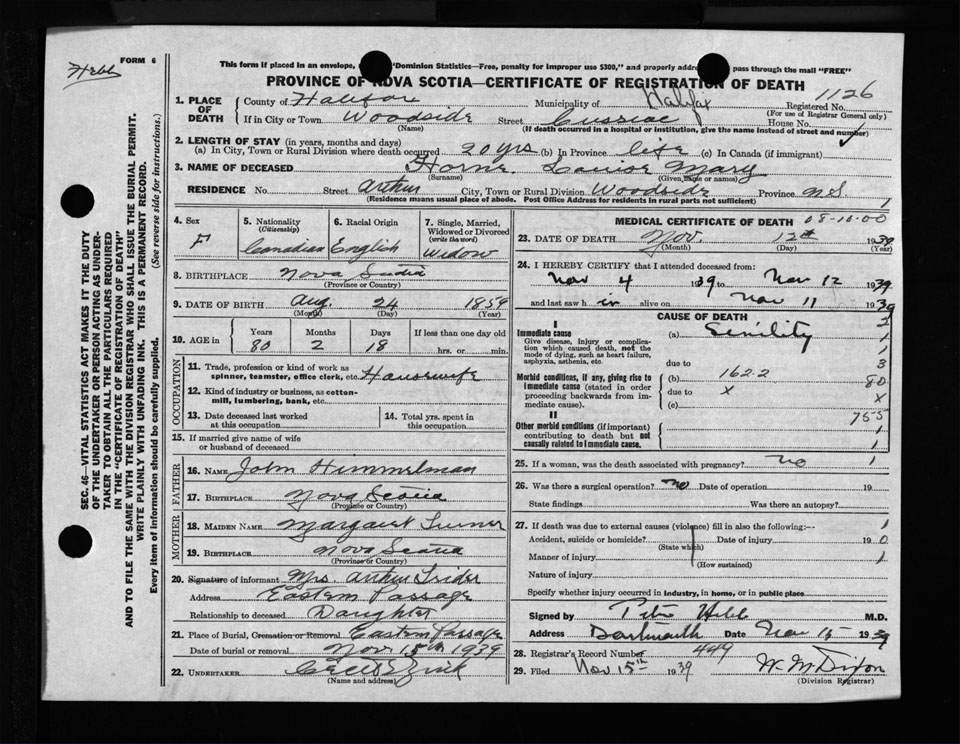 Hebb
FORM 6
This form if placed in an envelope, "Dominion Statistics—Free, penalty for improper use $300," and properly addre pass through the mail "FREE"
PROVINCE OF NOVA SCOTIA—CERTIFICATE OF REGISTRATION OF DEATH
1126
1. PLACE OF DEATH County of Halifax Municipality of Halifax Registered No.
(For use of Registrar General only)
If in City or Town Woodside Street House No.
(Name) (If death occurred in a hospital or institution, give the name instead of street and number)
2. LENGTH OF STAY (in years, months and days)
(a) In City, Town or Rural Division where death occurred 20 yrs (b) In Province life (c) In Canada (if immigrant)
3. NAME OF DECEASED Horne Mary
(Surname) (Given name or names)
RESIDENCE No. Street Arthur City, Town or Rural Division Woodside Province N.S.
(Residence means usual place of abode. Post Office Address for residents in rural parts not sufficient) 1
4. Sex F
5. Nationality (Citizenship) Canadian
6. Racial Origin English
7. Single, Married, Widowed or Divorced (write the word) Widow
8. BIRTHPLACE Nova Scotia
(Province or Country)
9. DATE OF BIRTH Aug. 24 1859
(Month) (Day) (Year)
10. AGE in Years 80 Months 2 Days 18 If less than one day old
hrs. or min.
OCCUPATION
11. Trade, profession or kind of work as spinner, teamster, office clerk, etc. Housewife
12. Kind of industry or business, as cotton-mill, lumbering, bank, etc.
13. Date deceased last worked at this occupation
14. Total yrs. spent in this occupation
15. If married give name of wife or husband of deceased
FATHER
16. NAME John Himmelman
17. BIRTHPLACE Nova Scotia
(Province or Country)
MOTHER
18. MAIDEN NAME Margaret Turner
19. BIRTHPLACE Nova Scotia
(Province or Country)
20. Signature of informant Mrs. Arthur Trider
Address Eastern Passage
Relationship to deceased Daughter
21. Place of Burial, Cremation or Removal Eastern Passage
Date of burial or removal Nov 15th 1939
22. UNDERTAKER
(Name and address)
MEDICAL CERTIFICATE OF DEATH 08-10-00
23. DATE OF DEATH Nov. 12th 1939
(Month) (Day) (Year)
24. I HEREBY CERTIFY that I attended deceased from:
Nov 4 1939 to Nov 12 1939
and last saw h in alive on Nov 11 1939
CAUSE OF DEATH
I
Immediate cause (a) Senility
Give disease, injury or complication which caused death, not the mode of dying, such as heart failure, asphyxia, asthenia, etc.
due to
Morbid conditions, if any, giving rise to immediate cause (stated in order proceeding backwards from immediate cause).
(b) 162.2
due to x
(c)
II
Other morbid conditions (if important) contributing to death but not causally related to immediate cause.
2
1
1
3
80
x
755
1
1
25. If a woman, was the death associated with pregnancy? no 1
26. Was there a surgical operation? no Date of operation 19
State findings Was there an autopsy?
27. If death was due to external causes (violence) fill in also the following:— 1
Accident, suicide or homicide? Date of injury 19 0
(State which)
Manner of injury 1
(How sustained)
Nature of injury
Specify whether injury occurred in industry, in home, or in public place
Signed by Hebb M.D.
Address Dartmouth Date Nov 15 1939
28. Registrar's Record Number 449
29. Filed Nov 15th 1939 W. M. Dixon
(Division Registrar)
SEC. 46—VITAL STATISTICS ACT MAKES IT THE DUTY
OF THE UNDERTAKER OR PERSON ACTING AS UNDER-
TAKER TO OBTAIN ALL THE PARTICULARS REQUIRED
IN THE "CERTIFICATE OF REGISTRATION OF DEATH"
AND TO FILE THE SAME WITH THE DIVISION REGISTRAR WHO SHALL ISSUE THE BURIAL PERMIT.
WRITE PLAINLY WITH UNFADING INK. THIS IS A PERMANENT RECORD.
Every item of information should be carefully supplied. (See reverse side for instructions.)